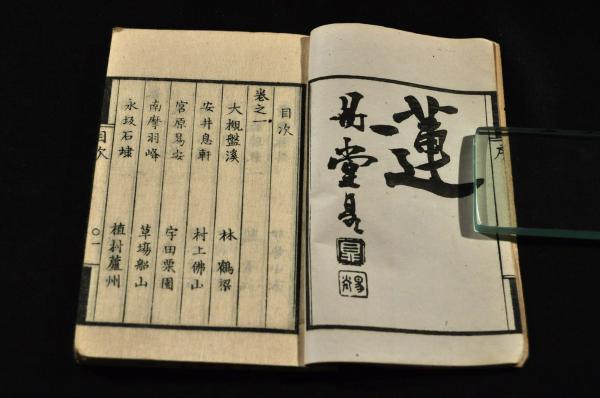 蓮
目次
卷之一
大槻盤溪 林 鶴梁
安井息軒 村上佛山
宮原易安 宇田栗園
南摩羽峰 草場船山
永坂石埭 植村蘆州
目次 〇一